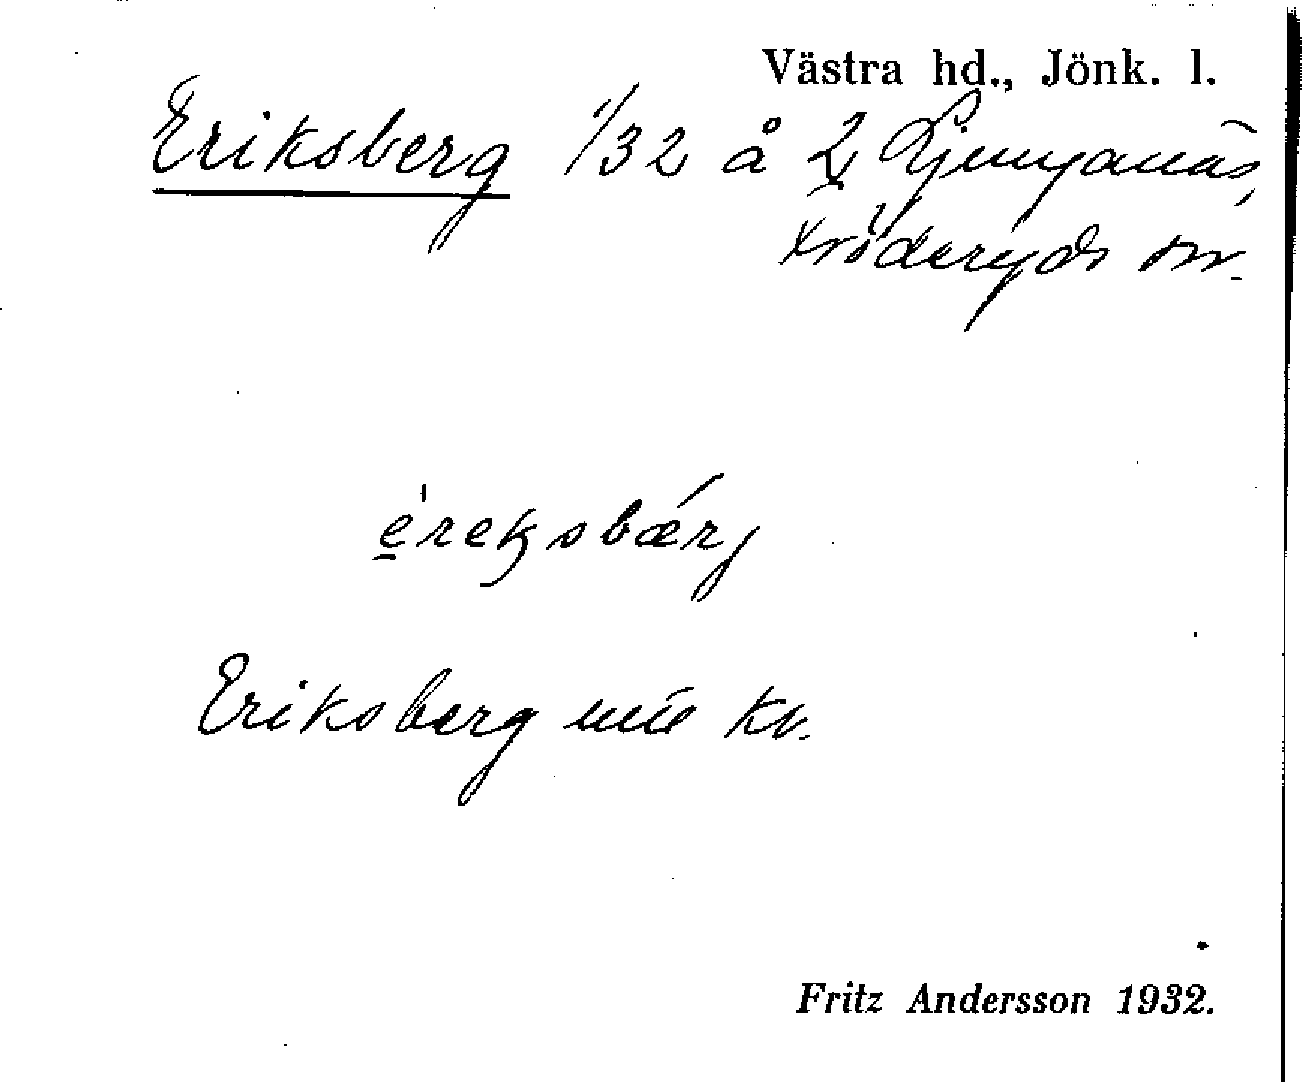 Västra hd., Jönk. l.
Eriksberg 1/32 å 2 Ljunganäs,
Fröderyds sn.
éreksbærj
Eriksberg kv.
Fritz Andersson 1932.